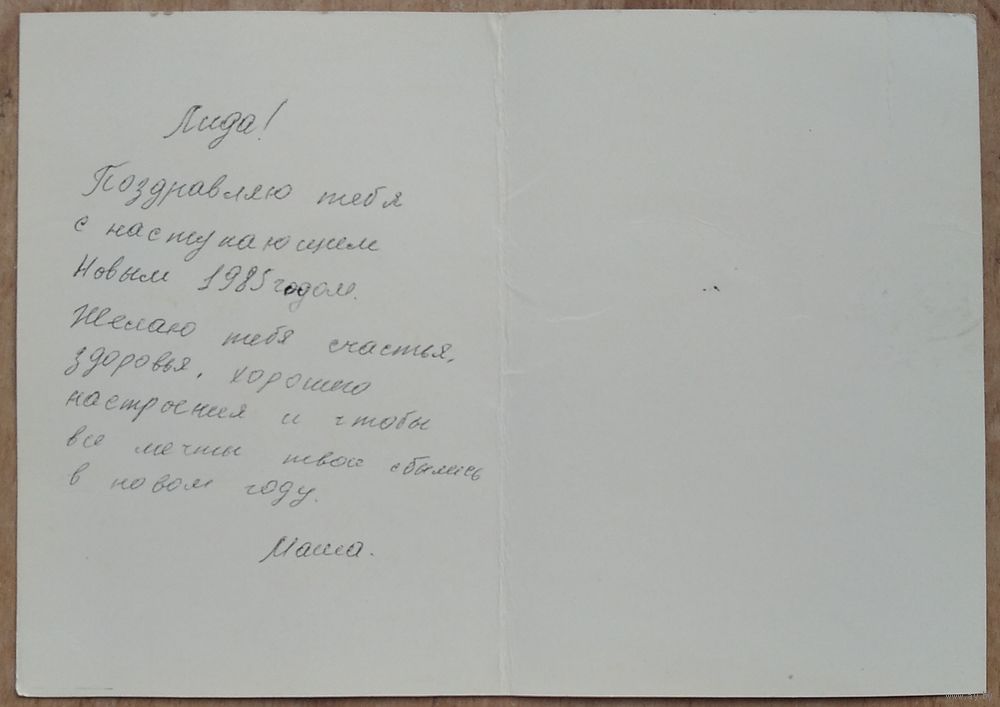 Лида!
Поздравляю тебя
с наступающим
Новым 1985 годом.
Желаю тебя счастья,
здоровья, хорошго
настроения и чтобы
все мечты твои сбылись
в новом году.
Маша.